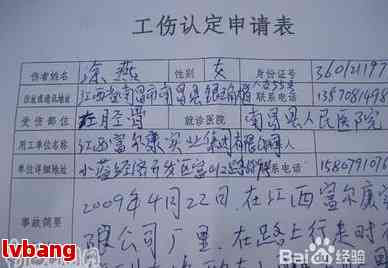 工伤认定申请表
伤者姓名 涂燕 性别 女 身份证号 360121197
住址或通讯地址 江西省南昌市南昌县 联系电话 1357081498
受伤部位 左胫骨 就诊医院 南昌县人民医院
用工单位名称 江西富尔康实业集团有限公司
单位详细地址 小蓝经济开发区富山 路 联系电话 1580791016
事故简要 2009年4月22日,在江西富尔康实
限公司厂里,在路上行走时
lvbang
Baidu 经验